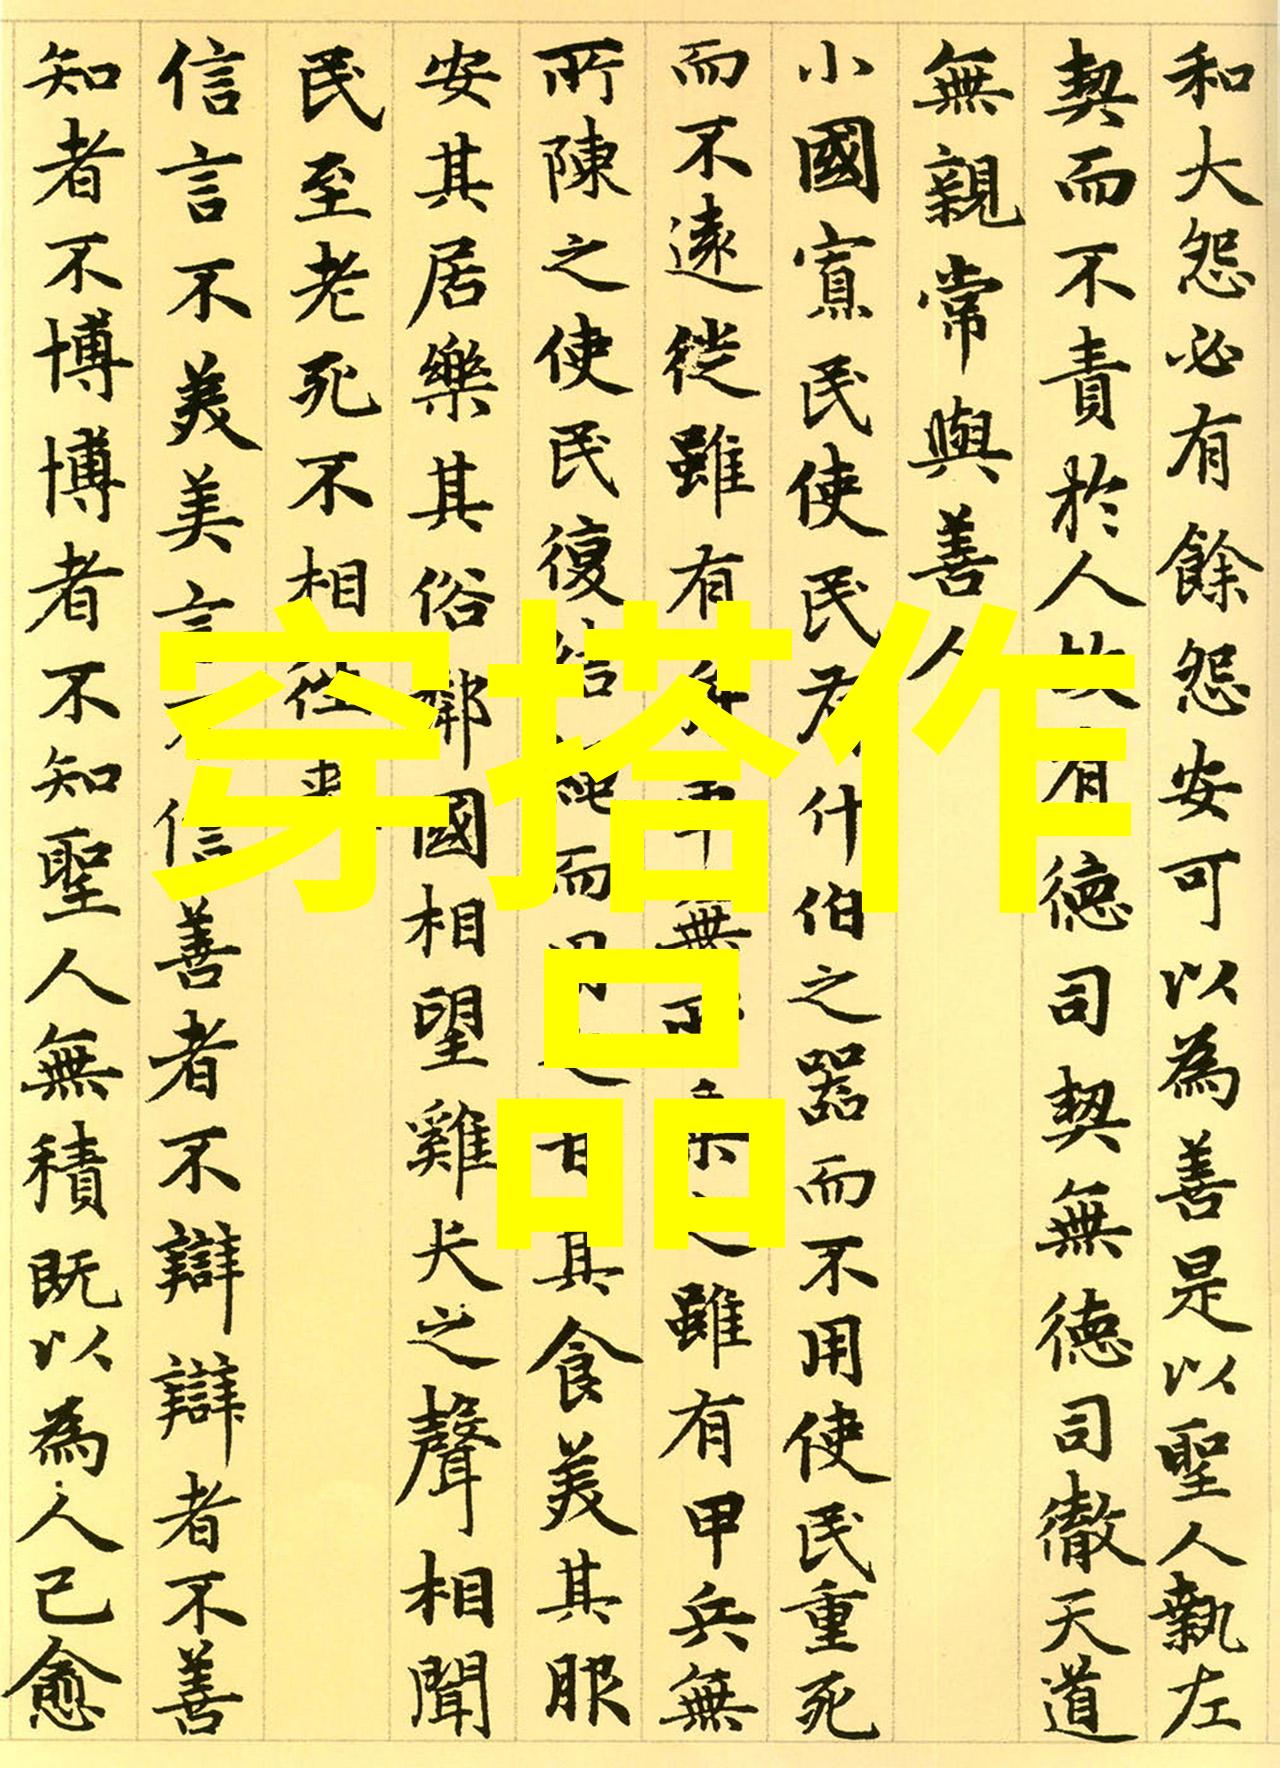 和大怨必有餘怨安可以為善是以聖人執左
契而不責於人故有德司契無德司徹天道
無親常與善人
小國寡民使民有什伯之器而不用使民重死
而不遠徙雖有舟車無所乘之雖有甲兵無
所陳之使民復結繩而用之甘其食美其服
安其居樂其俗鄰國相望雞犬之聲相聞
民至老死不相往來
信言不美美言不信善者不辯辯者不善
知者不博博者不知聖人無積既以為人己愈
穿搭作
品